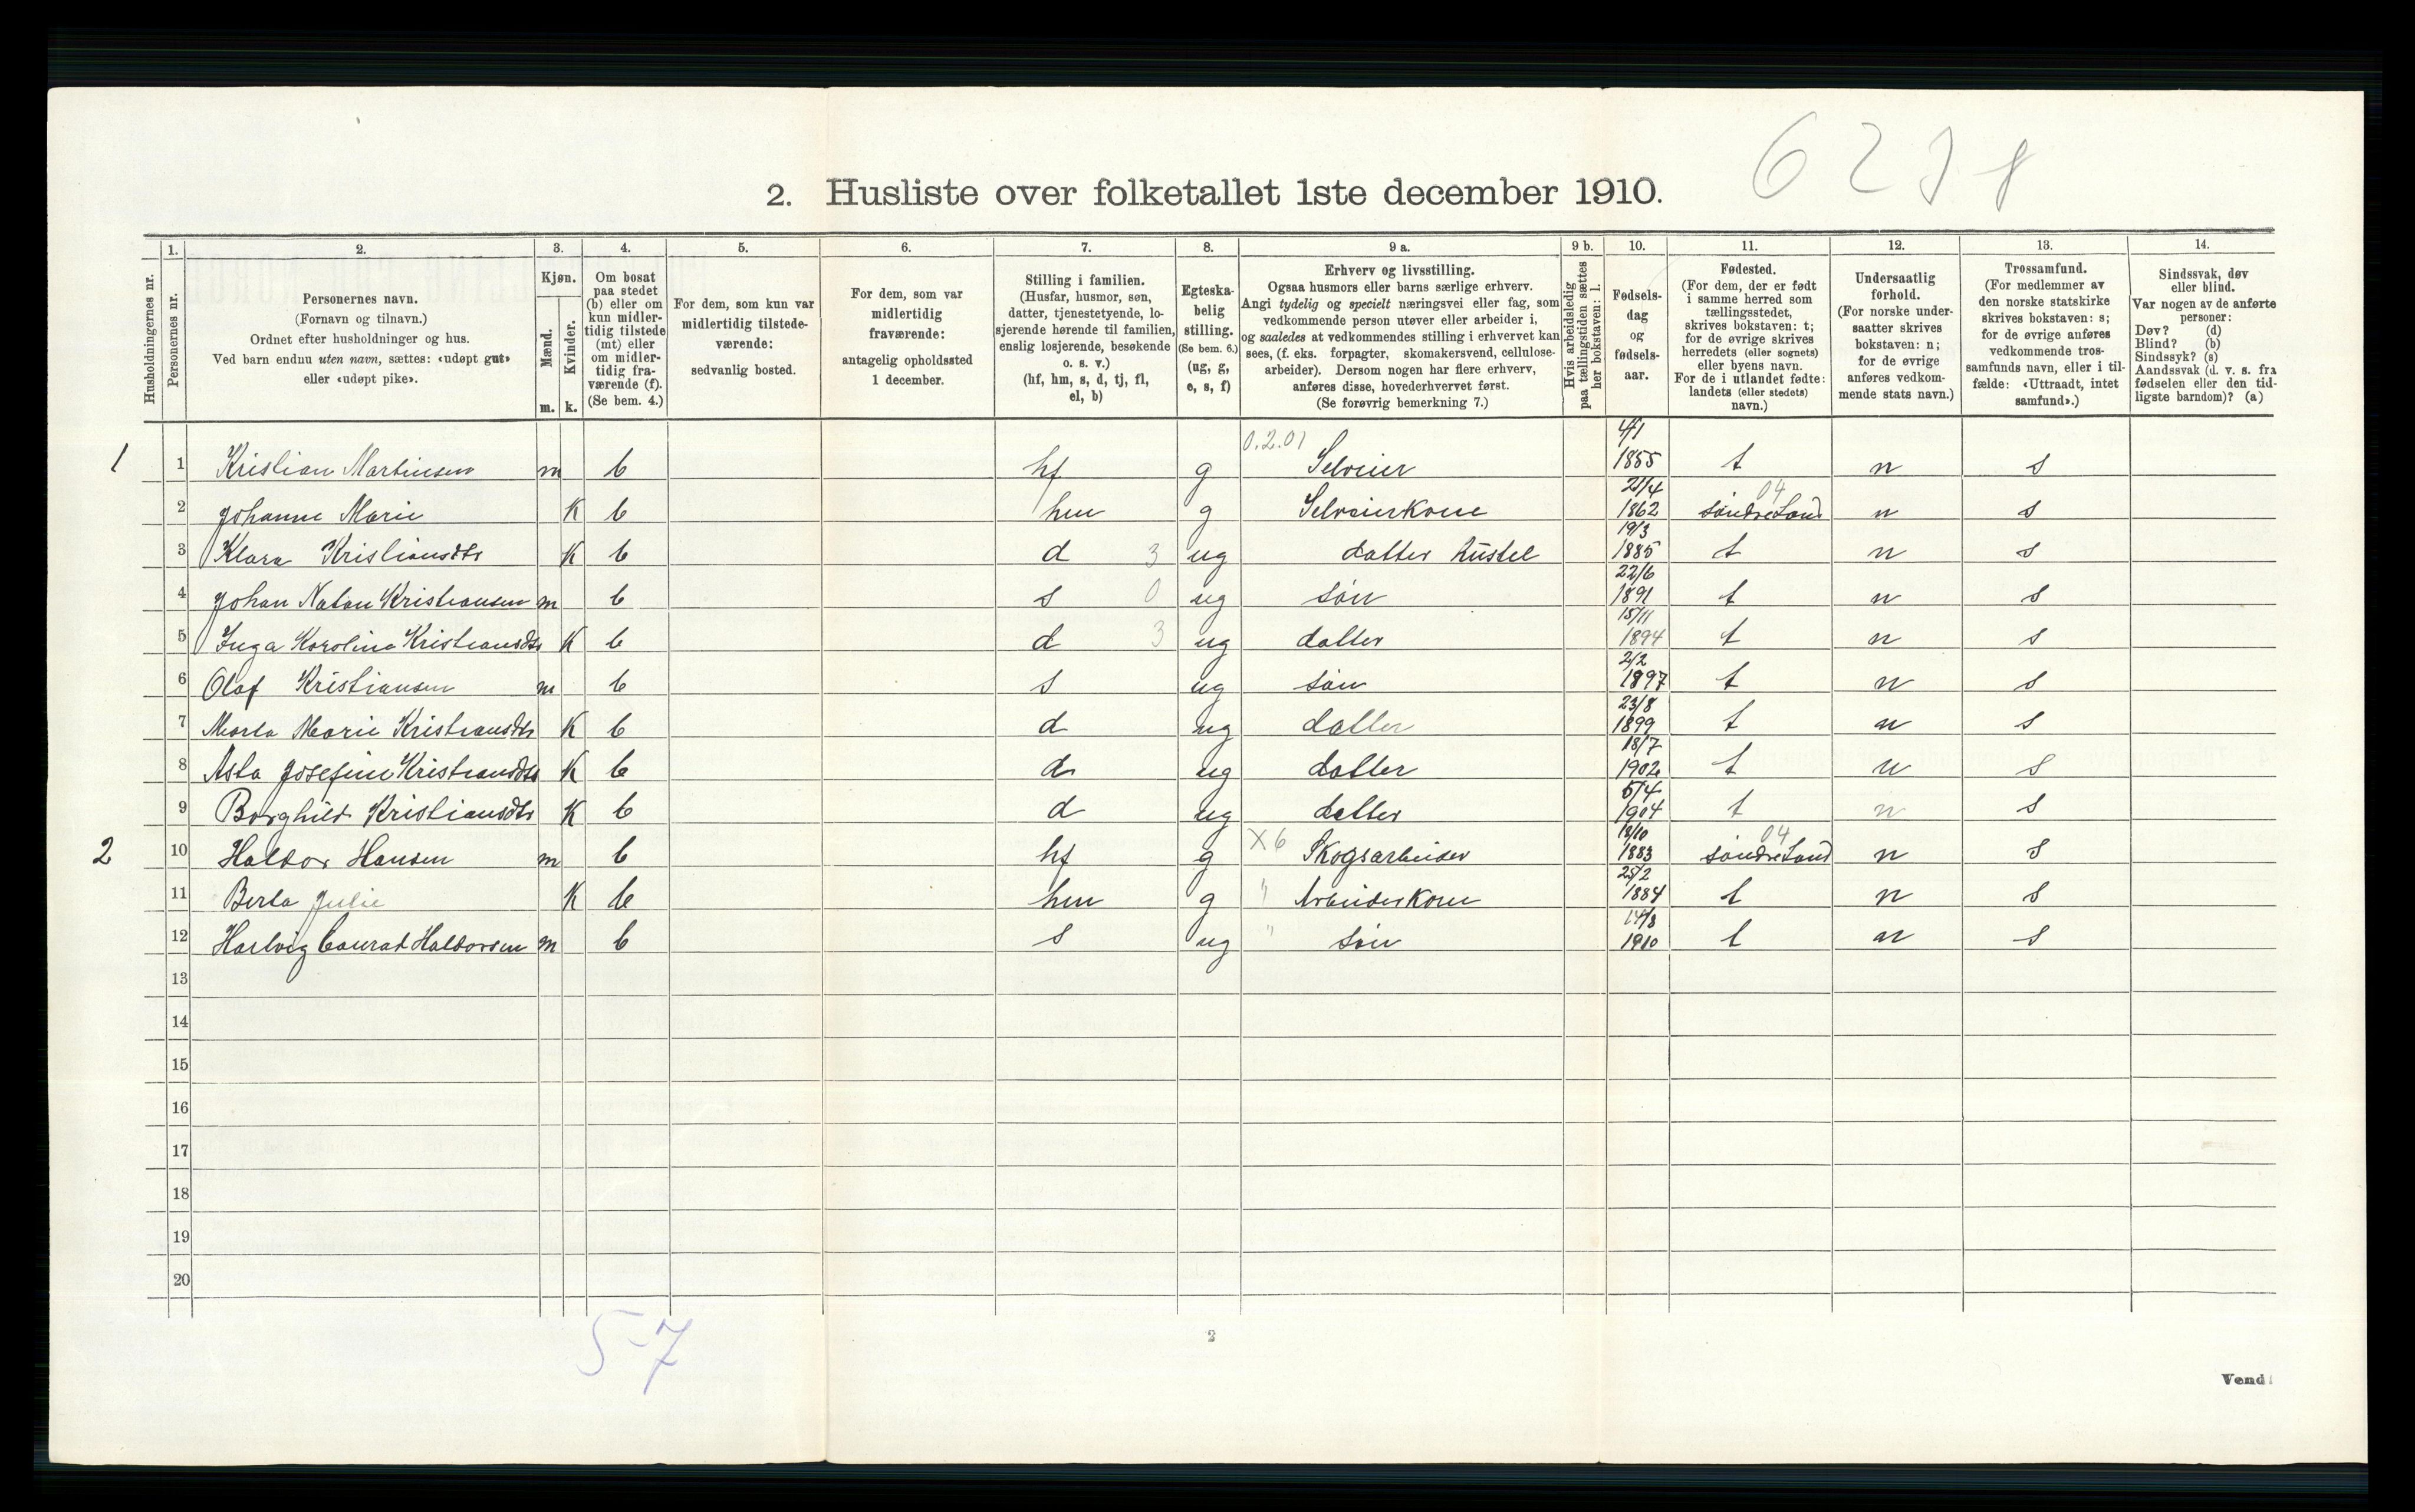 6238
2. Husliste over folketallet 1ste december 1910.
Husholdningernes nr.
1.
Personernes nr.
2.
Personernes navn.
(Fornavn og tilnavn.)
Ordnet efter husholdninger og hus.
Ved barn endnu uten navn, sættes: «udøpt gut»
eller «udøpt pike».
3.
Kjøn.
Mænd.
m.
Kvinder.
k.
4.
Om bosat
paa stedet
(b) eller om
kun midler-
tidig tilstede
(mt) eller
om midler-
tidig fra-
værende (f).
(Se bem. 4.)
5.
For dem, som kun var
midlertidig tilstede-
værende:
sedvanlig bosted.
6.
For dem, som var
midlertidig
fraværende:
antagelig opholdssted
1 december.
7.
Stilling i familien.
(Husfar, husmor, søn,
datter, tjenestetyende, lo-
sjerende hørende til familien,
enslig losjerende, besøkende
o. s. v.)
(hf, hm, s, d, tj, fl,
el, b)
8.
Egteska-
belig
stilling.
(Se bem. 6.)
(ug, g,
e, s, f)
9 a.
Erhverv og livsstilling.
Ogsaa husmors eller barns særlige erhverv.
Angi tydelig og specielt næringsvei eller fag, som
vedkommende person utøver eller arbeider i,
og saaledes at vedkommendes stilling i erhvervet kan
sees, (f. eks. forpagter, skomakersvend, cellulose-
arbeider). Dersom nogen har flere erhverv,
anføres disse, hovederhvervet først.
(Se forøvrig bemerkning 7.)
9 b.
Hvis arbeidsledig
paa tællingstiden sættes
her bokstaven: l.
10.
Fødsels-
dag
og
fødsels-
aar.
11.
Fødested.
(For dem, der er født
i samme herred som
tællingsstedet,
skrives bokstaven: t;
for de øvrige skrives
herredets (eller sognets)
eller byens navn.
For de i utlandet fødte:
landets (eller stedets)
navn.)
12.
Undersaatlig
forhold.
(For norske under-
saatter skrives
bokstaven: n;
for de øvrige
anføres vedkom-
mende stats navn.)
13.
Trossamfund.
(For medlemmer av
den norske statskirke
skrives bokstaven: s;
for de øvrige anføres
vedkommende tros-
samfunds navn, eller i til-
fælde: «Uttraadt, intet
samfund».)
14.
Sindssvak, døv
eller blind.
Var nogen av de anførte
personer:
Døv? (d)
Blind? (b)
Sindssyk? (s)
Aandssvak (d. v. s. fra
fødselen eller den tid-
ligste barndom)? (a)
1 1 Kristian Martinsen m b hf g 0.2.01 Selveier 4/1 1855 t n s
2 Johanne Marie K b hm g Selveierkone 21/4 1862 04 søndre Land n s
3 Klara Kristiansdtr K b d 3 ug datter hustel 19/3 1885 t n s
4 Johan Natan Kristiansen m b s 0 ug søn 22/6 1891 t n s
5 Inga Karoline Kristiansdtr K b d 3 ug datter 15/11 1894 t n s
6 Olaf Kristiansen m b s ug søn 2/2 1897 t n s
7 Marta Marie Kristiansdtr K b d ug datter 23/8 1899 t n s
8 Asta Josefine Kristiansdtr K b d ug datter 18/7 1902 t n s
9 Borghild Kristiansdtr K b d ug datter 5/4 1904 t n s
2 10 Haldor Hansen m b hf g X6 Skogsarbeider 12/10 1883 04 søndre Land n s
11 Berta Julie K b hm g " Arbeiderkone 25/2 1884 t n s
12 Hartvig Conrad Haldorsen m b s ug " søn 14/8 1910 t n s
13
14
15
16
17
18
19
20
5-7
2
Vend!